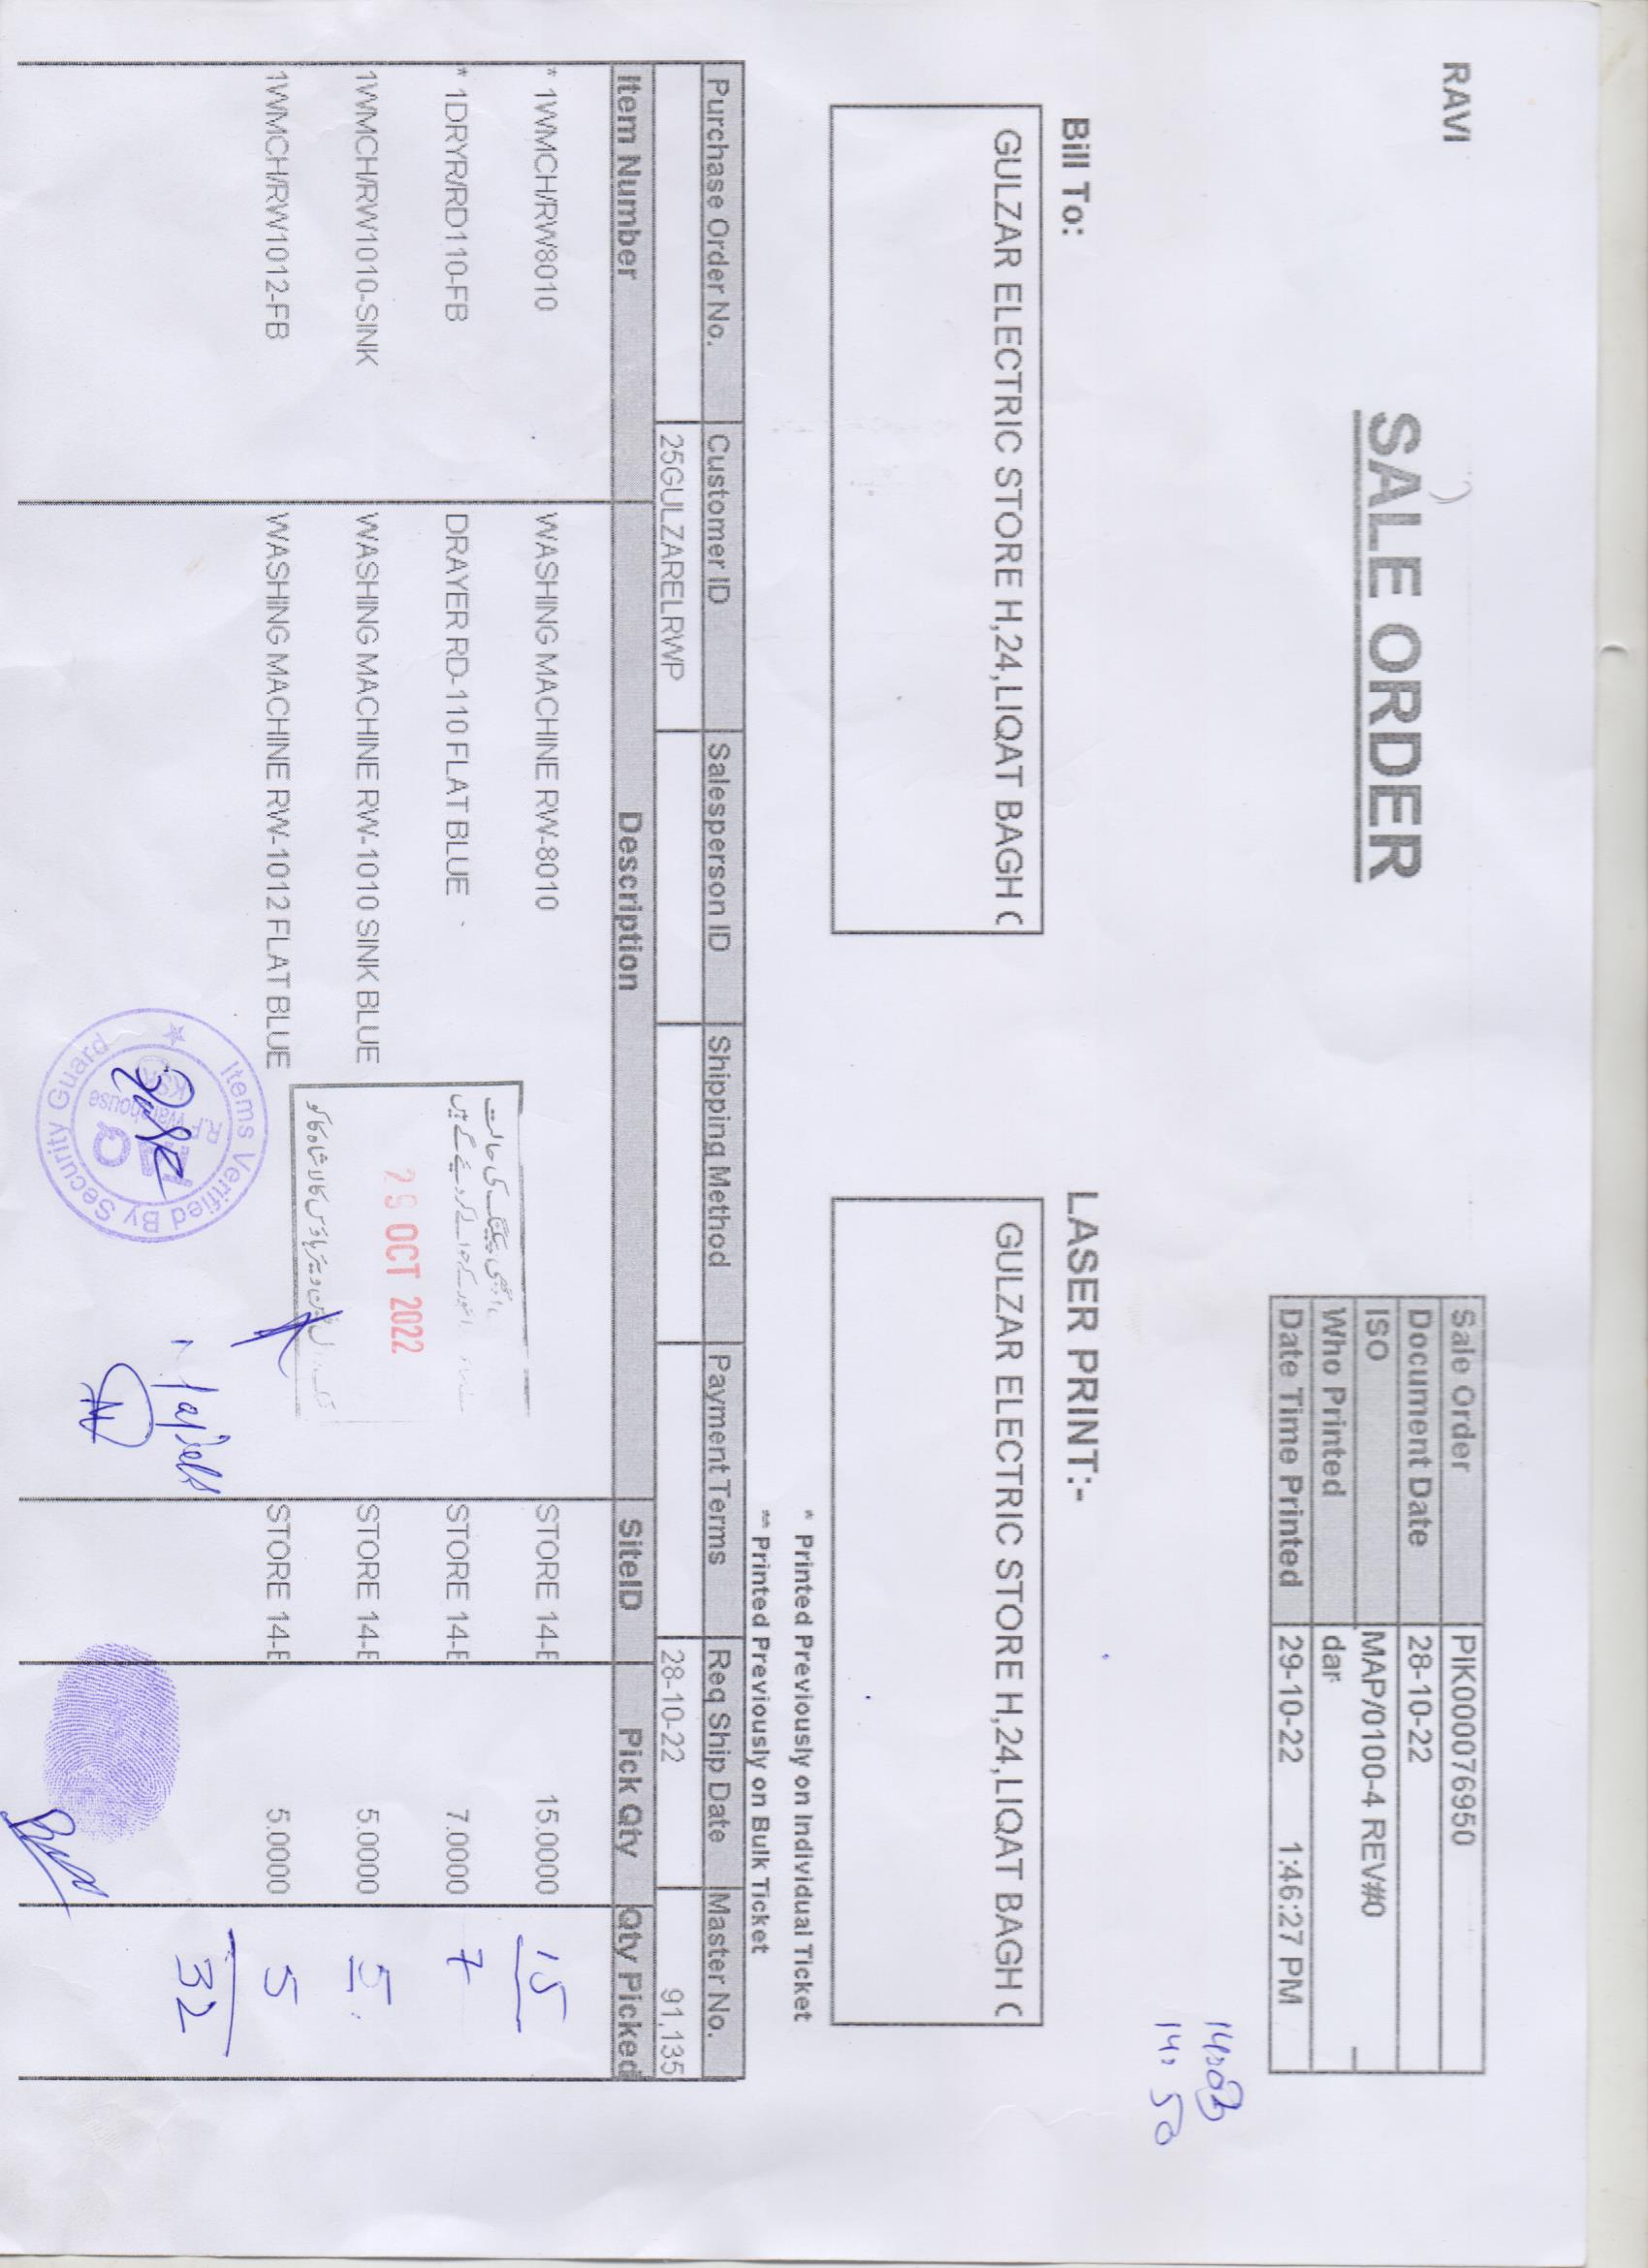 RAVI
SALE ORDER
Sale Order PIK000076950
Document Date 28-10-22
ISO MAP/0100-4 REV#0
Who Printed dar
Date Time Printed 29-10-22 1:46:27 PM
14:03
14:50
Bill To:
GULZAR ELECTRIC STORE H,24,LIQAT BAGH C
LASER PRINT:-
GULZAR ELECTRIC STORE H,24,LIQAT BAGH C
* Printed Previously on Individual Ticket
** Printed Previously on Bulk Ticket
Purchase Order No. Customer ID Salesperson ID Shipping Method Payment Terms Req Ship Date Master No.
25GULZARELRWP 28-10-22 91,135
Item Number Description SiteID Pick Qty Qty Picked
* 1WMCH/RW8010 WASHING MACHINE RW-8010 STORE 14-E 15.0000 15
* 1DRYR/RD110-FB DRAYER RD-110 FLAT BLUE STORE 14-E 7.0000 7
1WMCH/RW1010-SINK WASHING MACHINE RW-1010 SINK BLUE STORE 14-E 5.0000 5
1WMCH/RW1012-FB WASHING MACHINE RW-1012 FLAT BLUE STORE 14-E 5.0000 5
32
اچھی پیکنگ کی حالت
کے حوالے کر دیئے گے ہیں
29 OCT 2022
ویئر ہاؤس کالا شاہ کاکو
Items Verified By Security Guard
R.F Warehouse
KSK